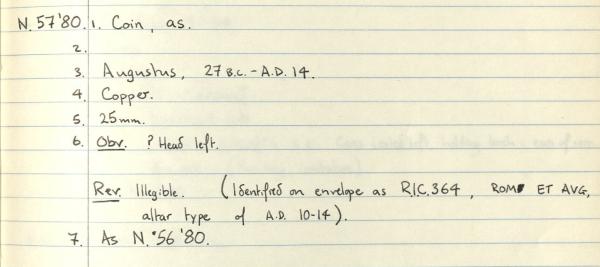 N.57'80. 1. Coin, as.
2.
3. Augustus, 27 B.C. - A.D. 14.
4. Copper.
5. 25mm.
6. Obv. ? Head left.
Rev. Illegible. (Identified on envelope as R.I.C. 364, ROM ET AVG,
altar type of A.D. 10-14).
7. As N.56'80.